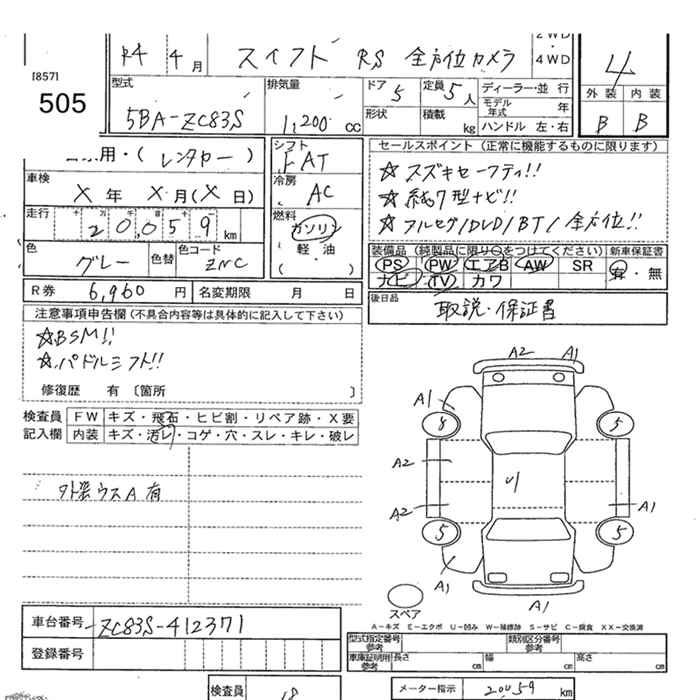 R4 4月 スイフト RS 全方位カメラ 2WD・4WD 4
[857]
505
型式 5BA-ZC83S 排気量 1,200 cc ドア 5 形状 定員 5人 積載 kg ディーラー・並行 モデル年式 年 ハンドル 左・右 外装 B 内装 B
用・(レンタカー) シフト FAT セールスポイント (正常に機能するものに限ります)
車検 X年 X月(X日) 冷房 AC ☆スズキセーフティ!!
☆純7型ナビ!!
走行 20,059 km 燃料 ガソリン・軽・油・( ) ☆フルセグ/DVD/BT/全方位!!
色 グレー 色替 色コード ZNC
装備品 (純製品に限り○をつけてください) 新車保証書
PS PW エアB AW SR 有・無
ナビ TV カワ
R券 6,960円 名変期限 月 日 後日品 取説・保証書
注意事項申告欄(不具合内容等は具体的に記入して下さい)
☆BSM!!
☆パドルシフト!!
修復歴 有 〔箇所 〕
検査員 記入欄
FW キズ・飛石・ヒビ割・リペア跡・X要
内装 キズ・汚レ・コゲ・穴・スレ・キレ・破レ
外装ウスA有
A2 A1
A1 8 5
A2
A2 A1
5 5
A1 A1
スペア
A-キズ E-エクボ U-凹み W-補修跡 S-サビ C-腐食 XX-交換済
車台番号 ZC83S-412371
登録番号
型式指定番号 参考 類別区分番号 参考
車庫証明用 参考 長さ cm 幅 cm 高さ cm
検査員 18 メーター指示 20059 km